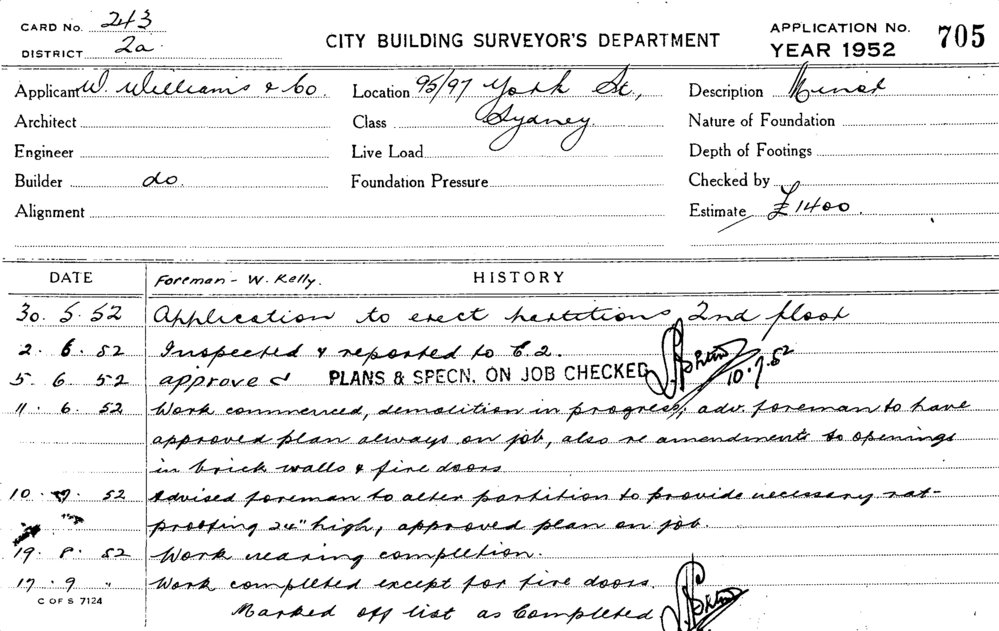 CARD No. 243
DISTRICT 2a.
CITY BUILDING SURVEYOR'S DEPARTMENT
APPLICATION No. 705
YEAR 1952
Applicant W. Williams & Co. Location 95/97 York St., Description Minor
Architect Class Sydney. Nature of Foundation
Engineer Live Load Depth of Footings
Builder do. Foundation Pressure Checked by
Alignment Estimate £1400.
DATE Foreman - W. Kelly. HISTORY
30. 5. 52 Application to erect partitions 2nd floor
2. 6. 52 Inspected & reported to C.2.
5. 6. 52 approved PLANS & SPECN. ON JOB CHECKED 10.7.52
11. 6. 52 Work commenced, demolition in progress; adv. foreman to have
approved plan always on job, also re amendments to openings
in brick walls & fire doors
10. 7. 52 Advised foreman to alter partition to provide necessary rat-
proofing 24" high, approved plan on job.
19. 8. 52 Work nearing completion.
17. 9 " Work completed except for fire doors.
C OF S 7124
Marked off list as Completed